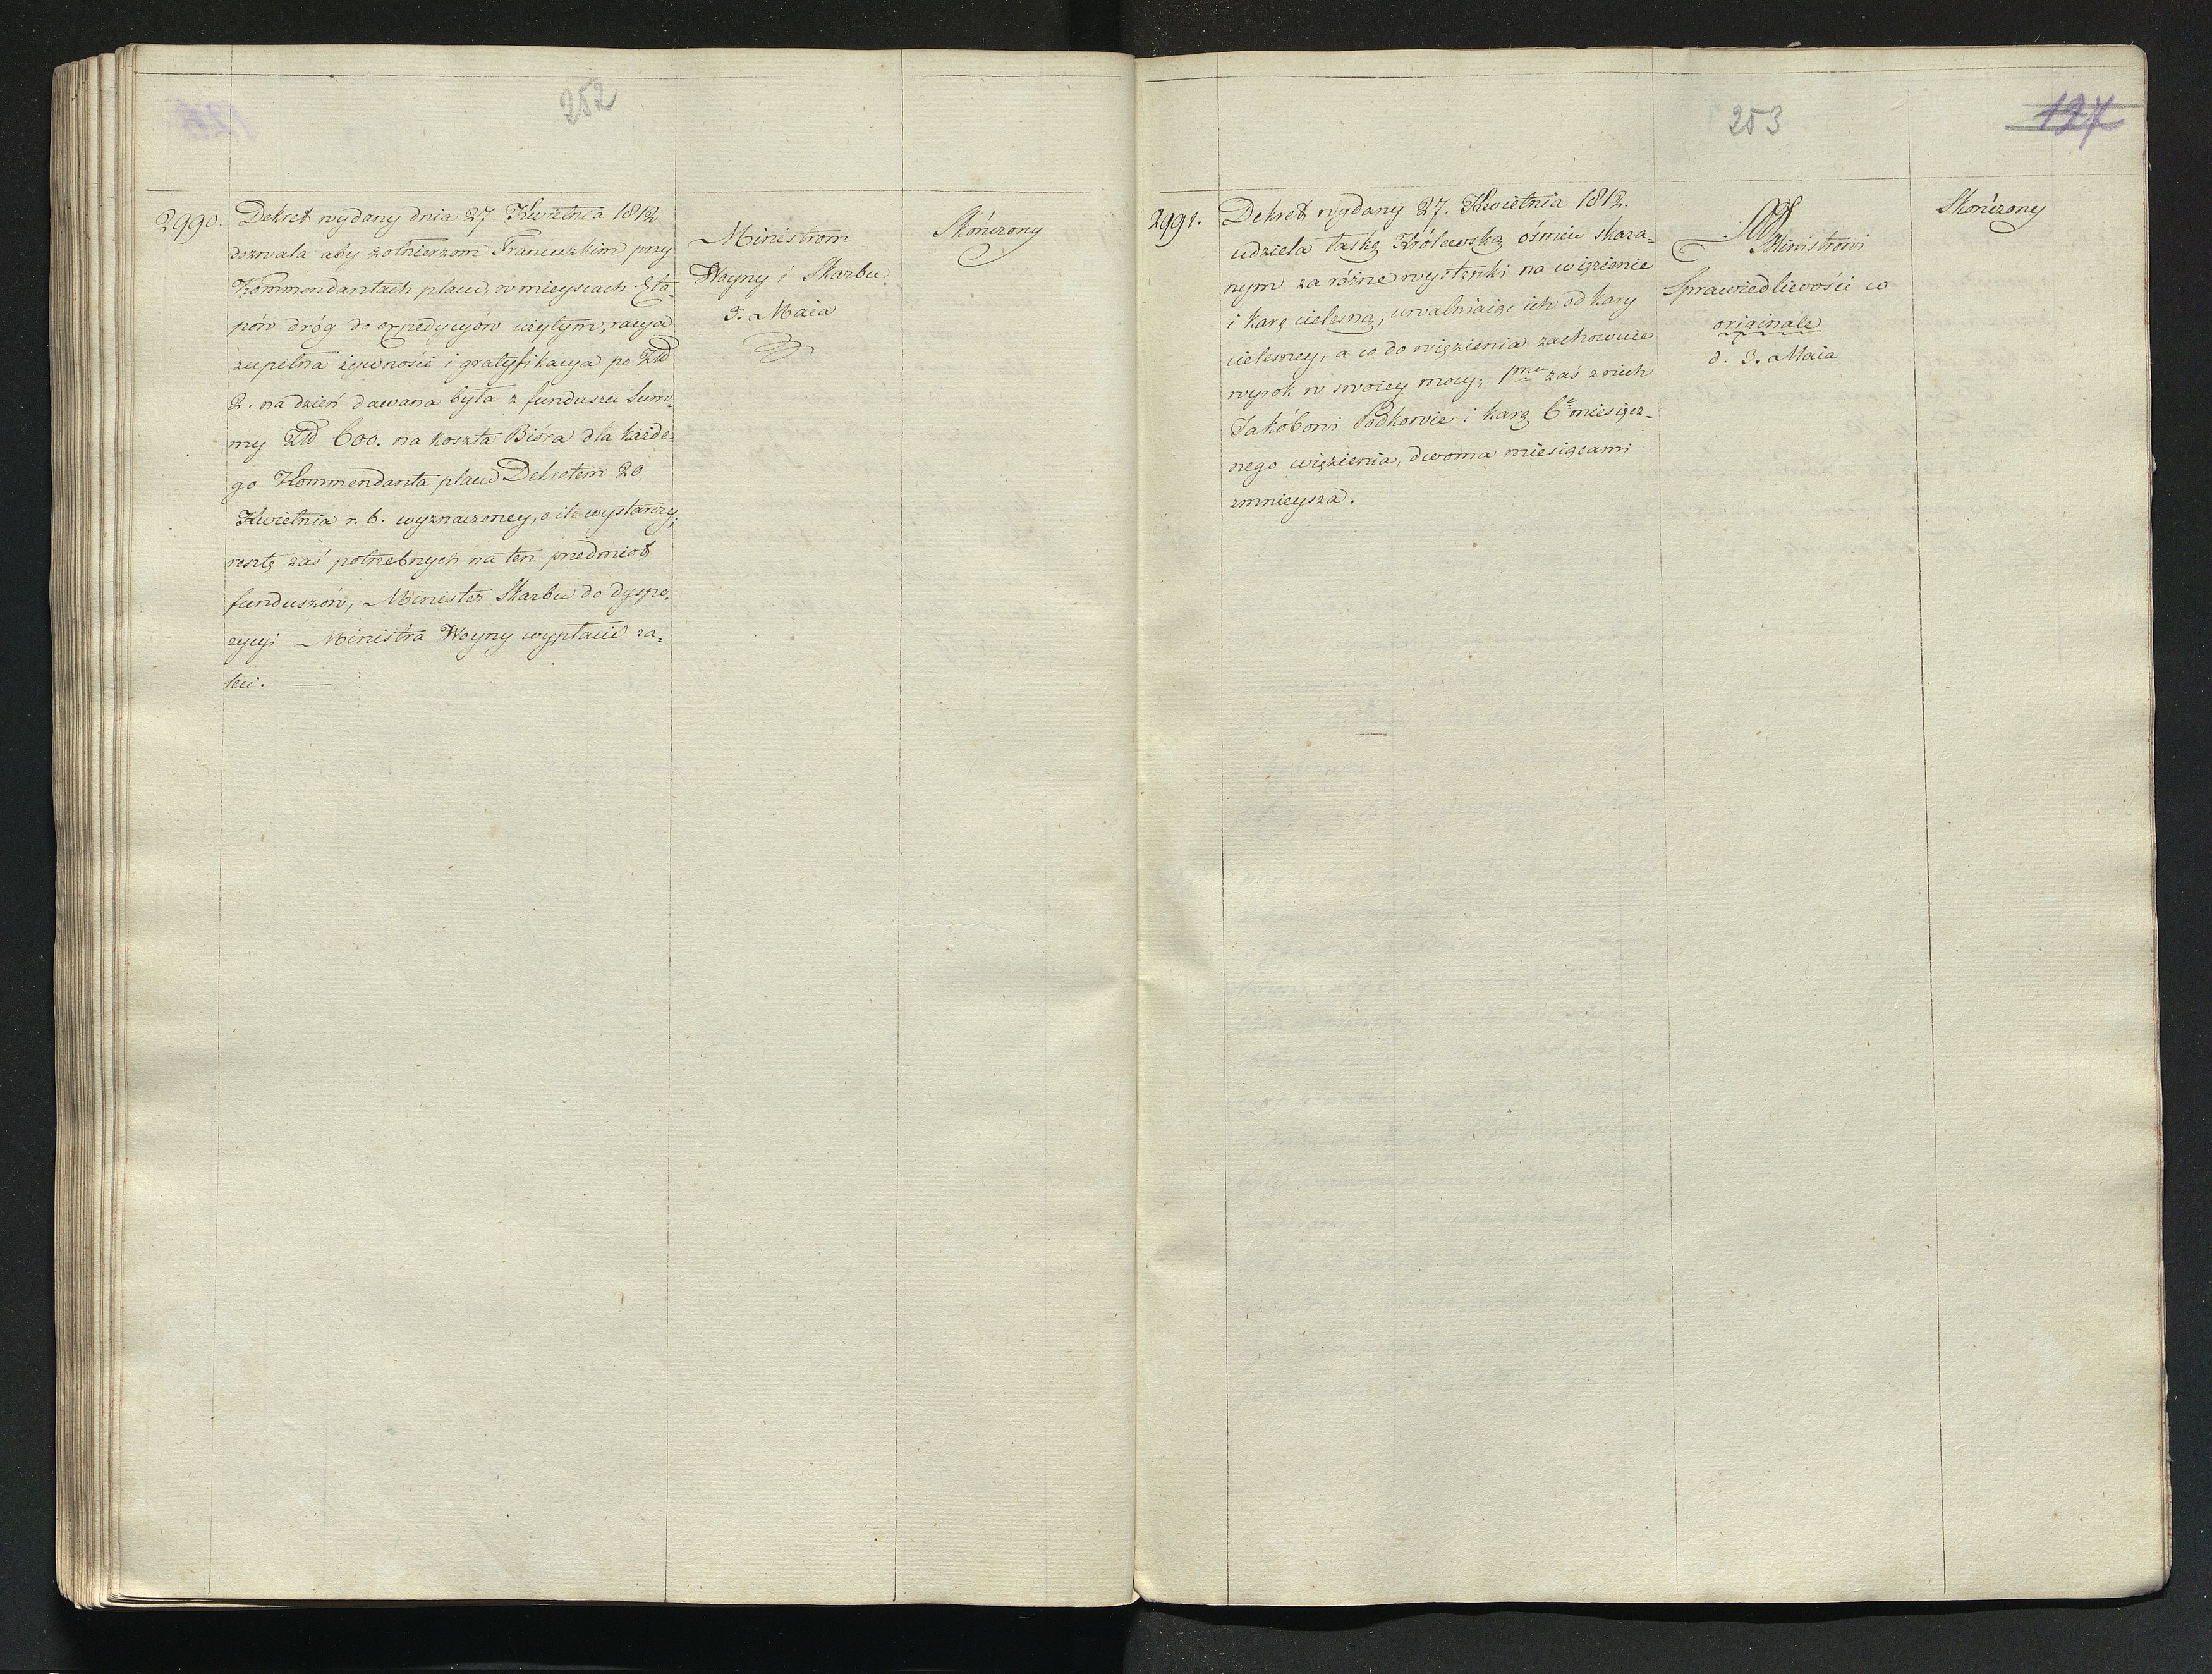 252
2990.
Dekret wydany dnia 27. Kwietnia 1812.
dozwala aby żołnierzom Francuzkim przy
Kommendantach placu, w mieyscach Eta-
pów dróg do expedycyów użytym, racya
zupełna żywności i gratyfikacya po Złł
2. na dzień dawana była z funduszu Sum-
my Złł 600. na koszta Bióra dla każde-
go Kommendanta placu Dekretem 20
Kwietnia r. b. wyznaczoney, o ile wystarczy;
resztę zaś potrzebnych na ten przedmiot
funduszów, Minister Skarbu do dyspo-
zycyi Ministra Woyny wypłacić za-
leci. —
Ministrom
Woyny i Skarbu
3. Maia
Skończony
253
127
2991.
Dekret wydany 27. Kwietnia 1812.
udziela łaskę Królewską ośmiu skaza-
nym za różne występki na więzienie
i karę cielesną, uwalniaiąc ich od kary
cielesney, a co do więzienia zachowuie
wyrok w swoiey mocy; zaś z nich
Jakóbowi Podkowie i karę 6. miesięcz-
nego więzienia, dwoma miesiącami
zmnieysza.
Ministrowi
Sprawiedliwości w
originale
d. 3. Maia
Skończony